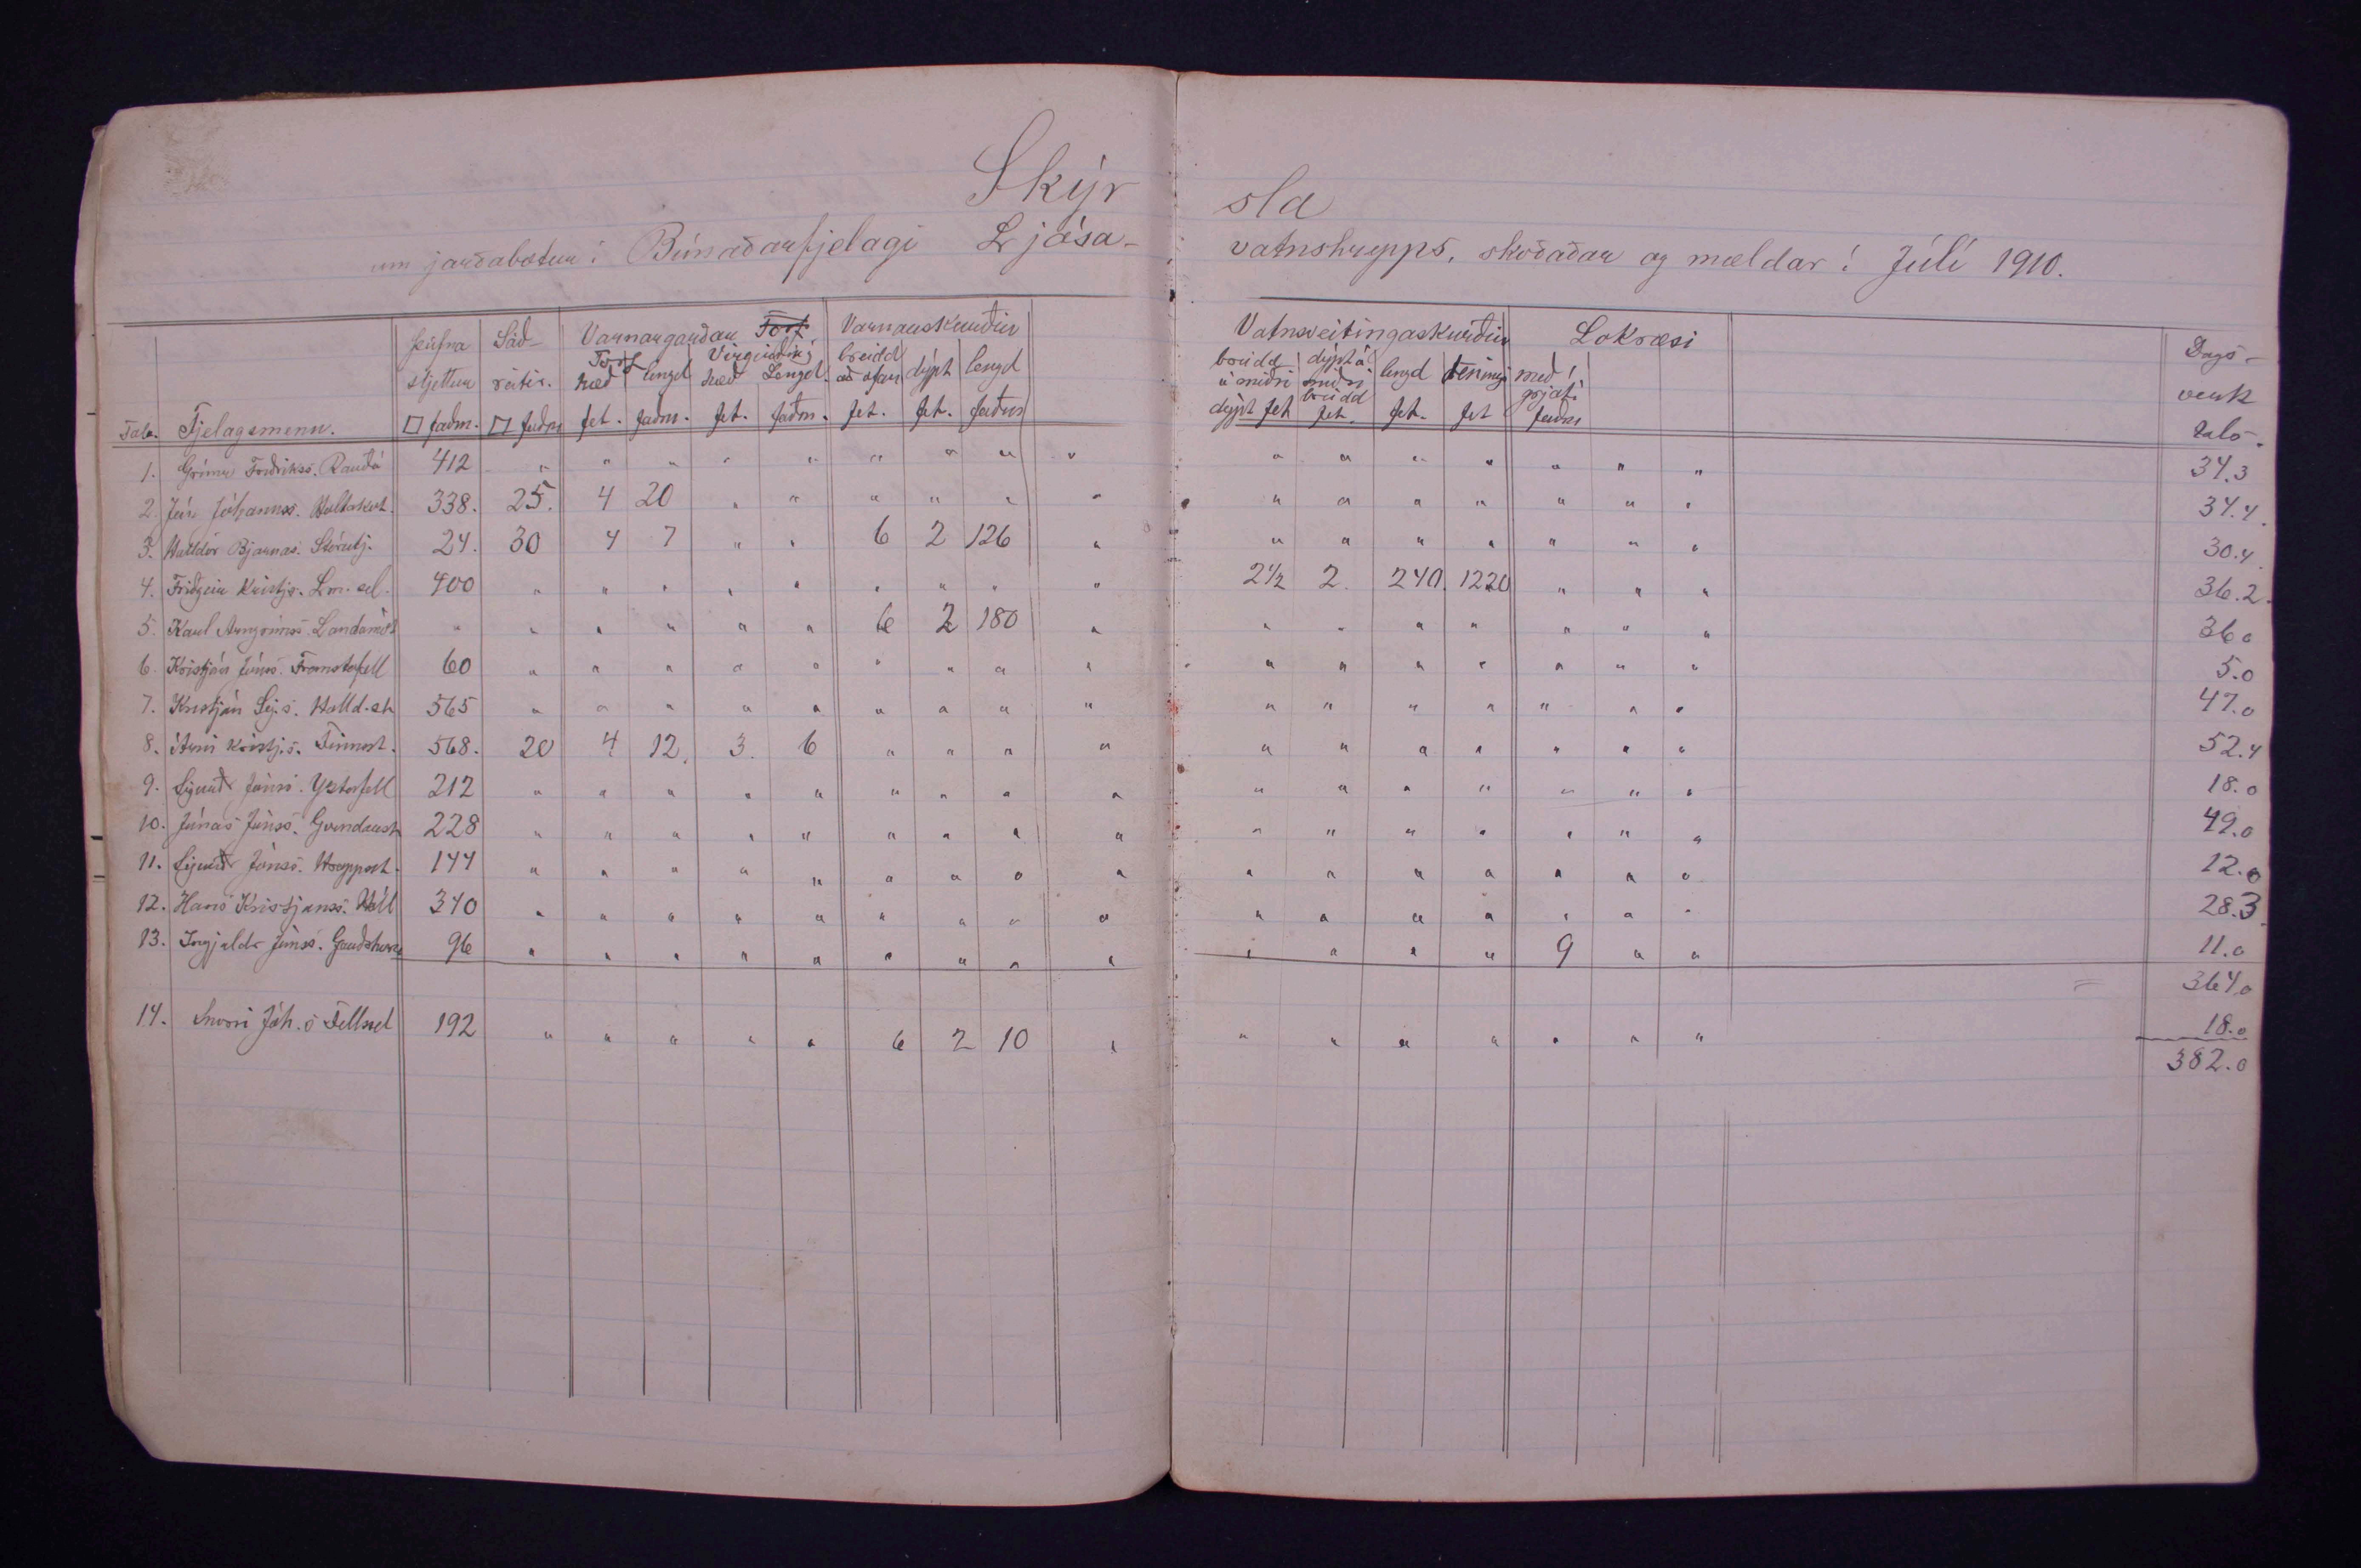 Skýrsla
um jarðabætur í Búnaðarfjelagi Ljósavatnshrepps, skoðaðar og mældar í Júlí 1910.
Þúfna Sáð- Varnargarðar Varnarskurðir Vatnsveitingaskurðir Lokræsi Dags-
sljettur reitir. Torf Vírgirðing breidd dýpt lengd breidd dýpt á lengd tenings með verk
hæð lengd hæð Lengd að ofan á miðri miðri grjóti tala.
Tala. Fjelagsmenn. □ faðm. □ faðm fet. faðm. fet. faðm. fet. fet. faðm dýpt fet breidd fet. fet. fet faðm
1. Grímur Friðrikss. Rauðá 412 " " " " " " " " " " " " " " " " 34.3
2. Jón Jóhannss. Holtakot. 338. 25. 4 20 " " " " " " " " " " " " " 34.4.
3. Halldór Bjarnas. Stórutj. 24. 30 4 7 " " 6 2 126 " " " " " " " " 30.4
4. Friðgeir Kristjs. 400 " " " " " " " " " 2½ 2. 240. 1220 " " " 36.2.
5. Karl Arngrímss. Landamót " " " " " " 6 2 180 " " " " " " " " 36.0
6. Kristján Jónss. Fremstafell 60 " " " " " " " " " " " " " " " " 5.0
7. Kristján Sig.s. Halld.st 565 " " " " " " " " " " " " " " " " 47.0
8. Árni Kristj.s. Finnsst. 568. 20 4 12. 3. 6 " " " " " " " " " " " 52.4
9. Sigurð Jónss. Yztafell 212 " " " " " " " " " " " " " " " " 18.0
10. Jónas Jónss. 228 " " " " " " " " " " " " " " " " 49.0
11. Sigurð Jónss. 144 " " " " " " " " " " " " " " " " 12.0
12. Hans Kristjánss. Hóll 340 " " " " " " " " " " " " " " " " 28.3
13. Ingjaldr Jónss. 96 " " " " " " " " " " " " " 9 " " 11.0
= 364.0
14. Snorri Jóh.s Fellssel 192 " " " " " 6 2 10 " " " " " " " " 18.0
382.0